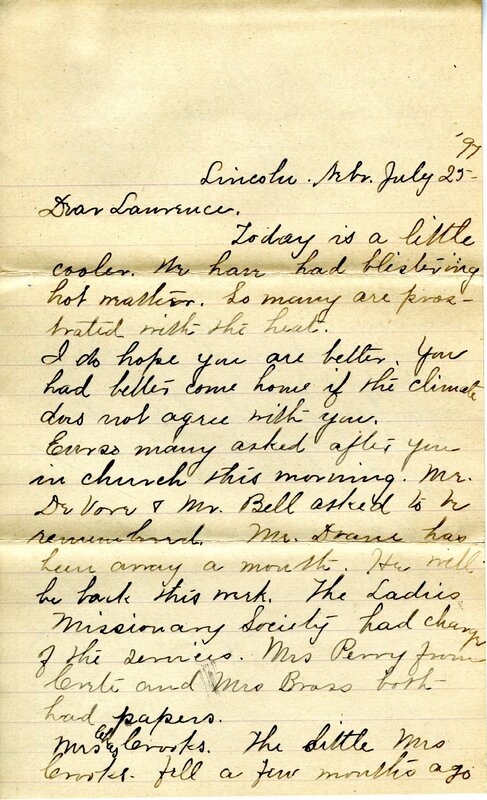 '97
Lincoln. Nebr. July 25-
Dear Lawrence.
Today is a little
cooler. We have had blistering
hot weather. So many are pros-
trated with the heat.
I do hope you are better. You
had better come home if the climate
does not agree with you.
Ever so many asked after you
in church this morning. Mr.
De Vore & Mr. Bell asked to be
remembered. Mr. Doane has
been away a month. He will
be back this week. The Ladies
Missionary Society had charge
of the services. Mrs Perry from
Crete and Mrs Brass both
had papers.
Mrs Crooks. The little Mrs
Crooks. fell a few months ago